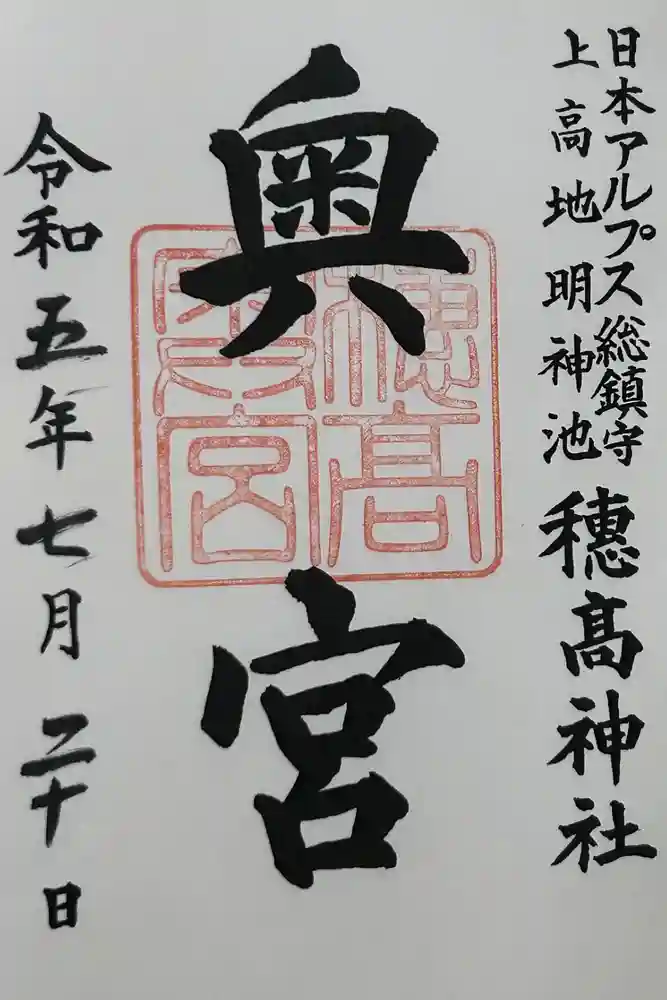 日本アルプス総鎮守
上高地明神池
穂髙神社
奥宮
穂髙奥宮
令和五年七月二十日